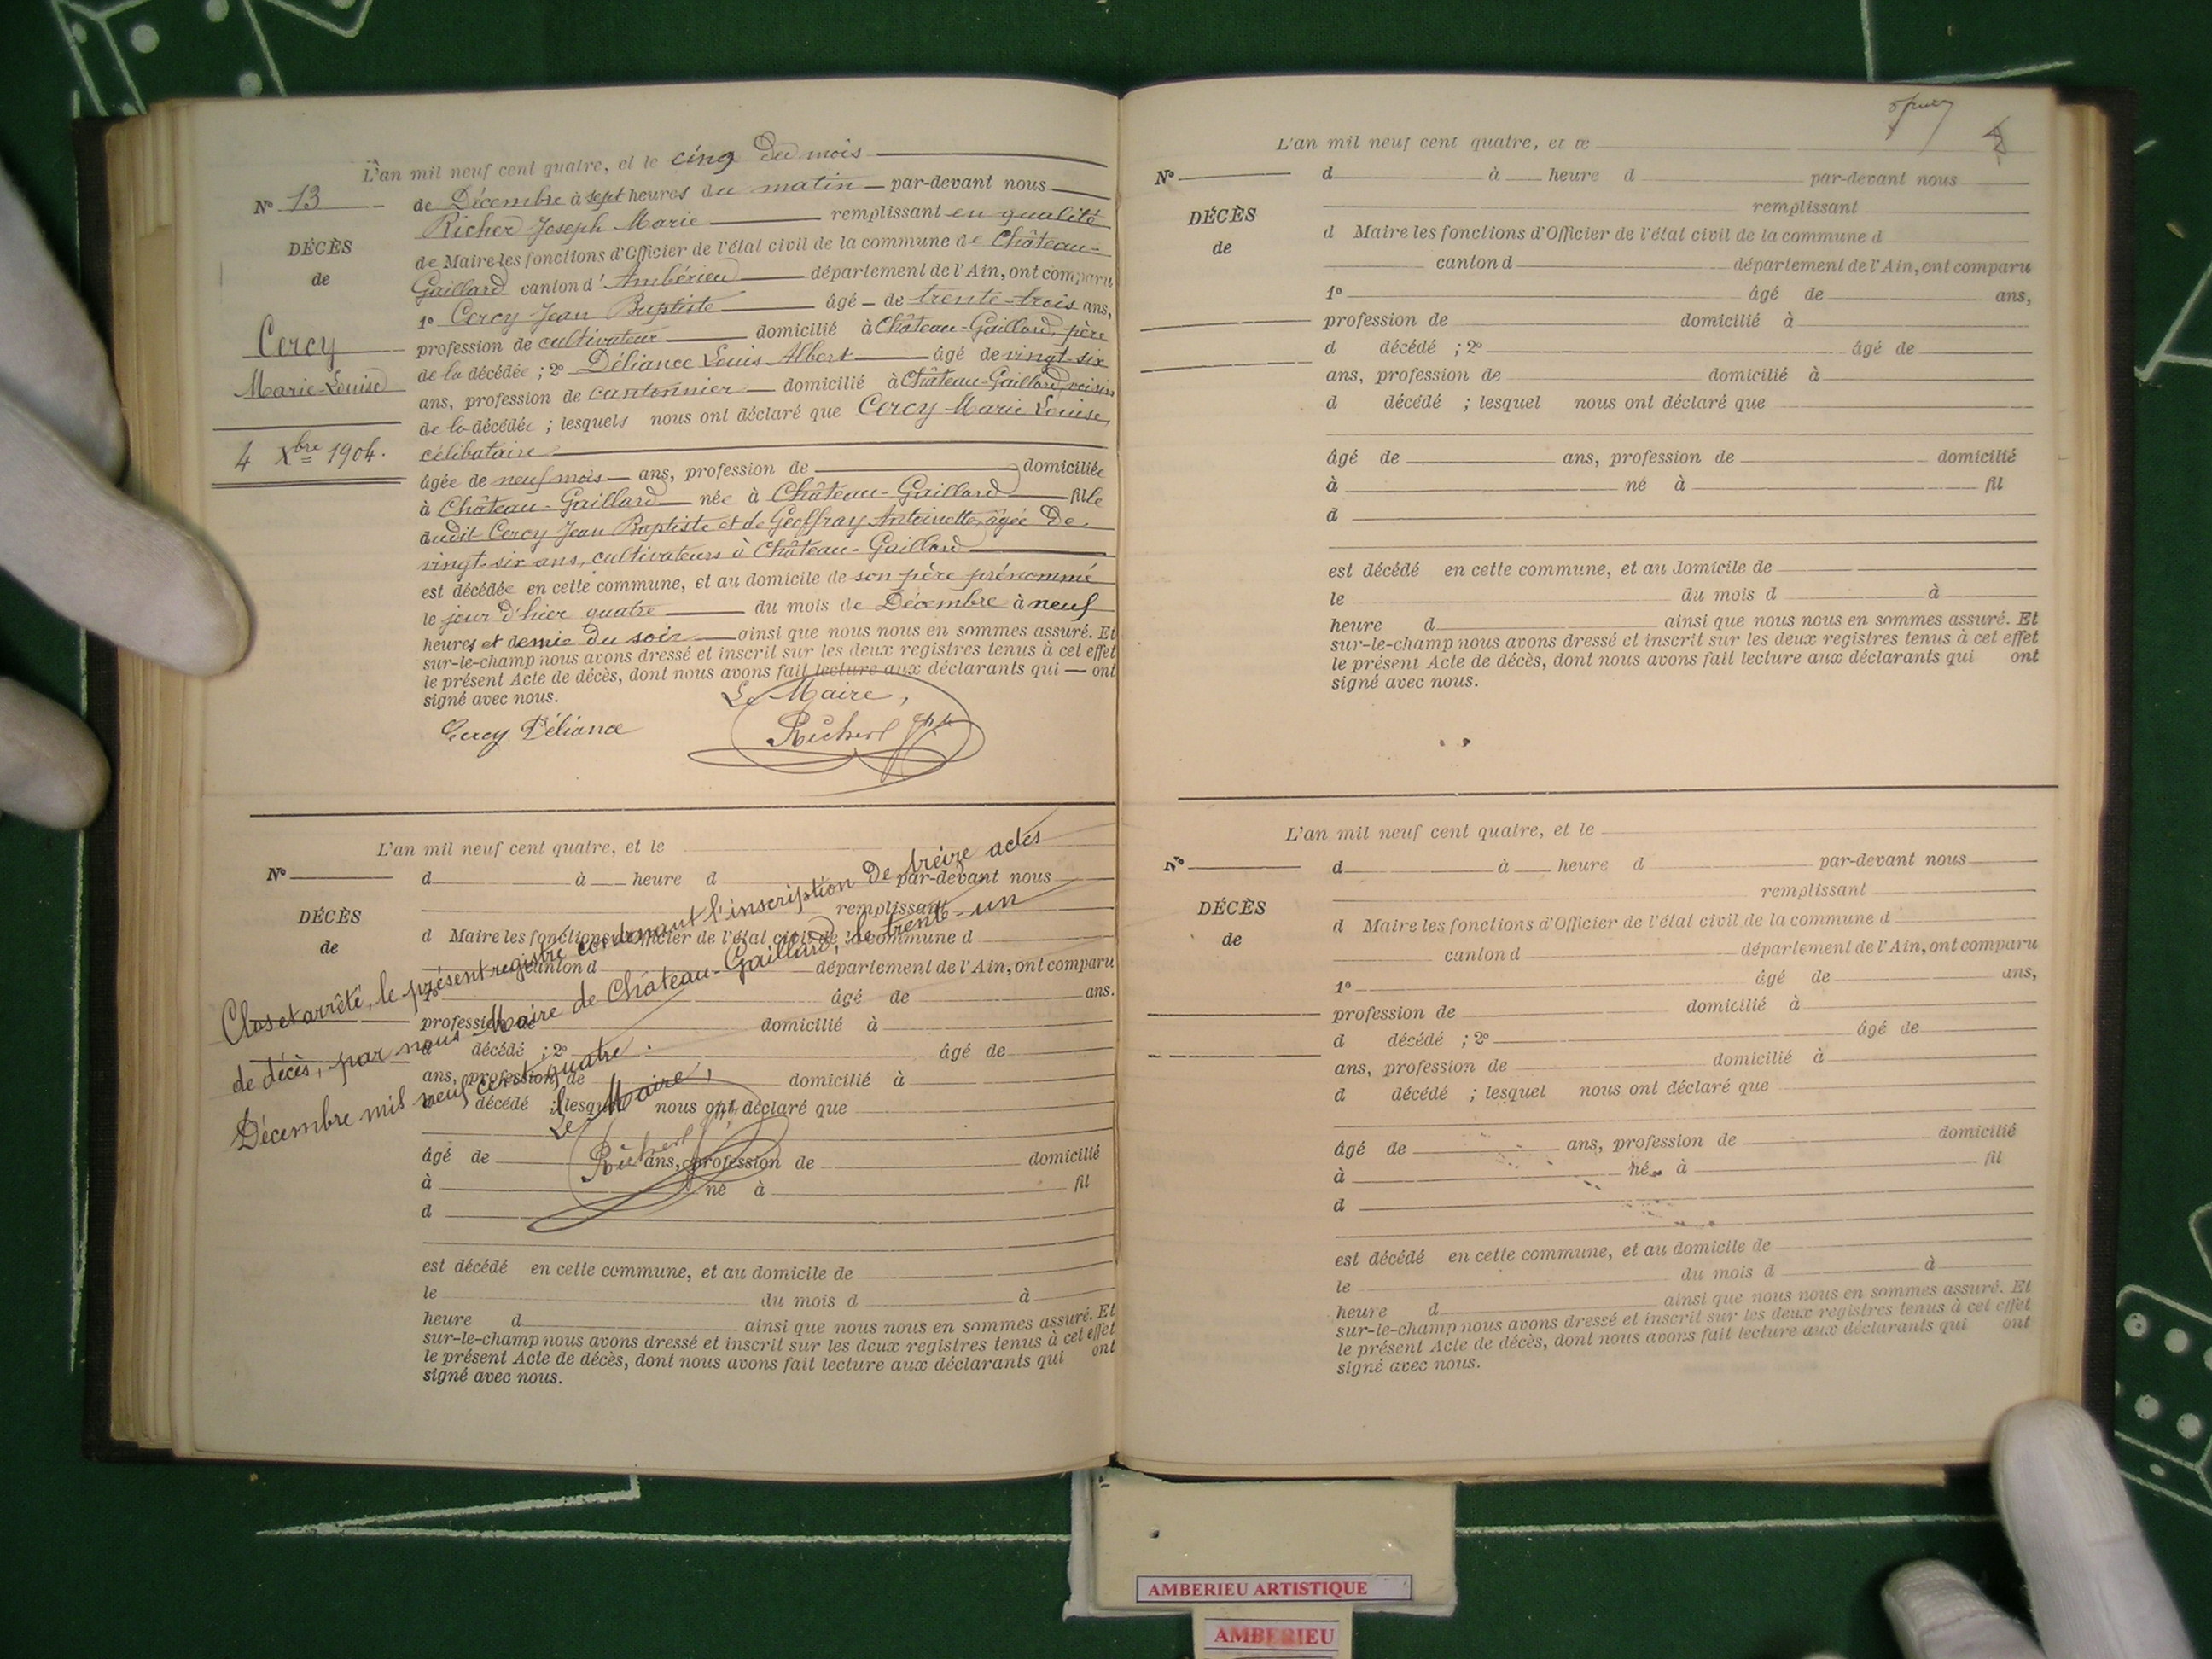 L'an mil neuf cent quatre, et le cinq du mois
N° 13
de Décembre à sept heures du matin par-devant nous
Richerd Joseph Marie remplissant en qualité
DÉCÈS
de
de Maire les fonctions d'Officier de l'état civil de la commune de Château-
Gaillard canton d'Ambérieu département de l'Ain, ont comparu
1° Cercy Jean Baptiste âgé de trente-trois ans,
Cercy
Marie-Louise
profession de cultivateur domicilié à Château-Gaillard, père
de la décédée ; 2° Déliance Louis Albert âgé de vingt-six
ans, profession de cantonnier domicilié à Château-Gaillard, voisin
de la décédée ; lesquels nous ont déclaré que Cercy Marie Louise,
4 Xbre 1904.
célibataire
âgée de neuf mois ans, profession de domiciliée
à Château-Gaillard née à Château-Gaillard fille
dudit Cercy Jean Baptiste et de Geoffray Antoinette, âgée de
vingt-six ans, cultivateurs à Château-Gaillard
est décédée en cette commune, et au domicile de son père prénommé
le jour d'hier quatre du mois de Décembre à neuf
heures et demie du soir ainsi que nous nous en sommes assuré. Et
sur-le-champ nous avons dressé et inscrit sur les deux registres tenus à cet effet
le présent Acte de décès, dont nous avons fait lecture aux déclarants qui ont
signé avec nous.
Le Maire,
Cercy Déliance
Richerd Jph
L'an mil neuf cent quatre, et le
N°
d à heure d par-devant nous
remplissant
DÉCÈS
de
d Maire les fonctions d'Officier de l'état civil de la commune d
canton d département de l'Ain, ont comparu
1° âgé de ans.
profession de domicilié à
d décédé ; 2° âgé de
ans, profession de domicilié à
d décédé ; lesquel nous ont déclaré que
âgé de ans, profession de domicilié
à né à fil
d
est décédé en cette commune, et au domicile de
le du mois d à
heure d ainsi que nous nous en sommes assuré. Et
sur-le-champ nous avons dressé et inscrit sur les deux registres tenus à cet effet
le présent Acte de décès, dont nous avons fait lecture aux déclarants qui ont
signé avec nous.
Clos et arrêté, le présent registre contenant l'inscription de treize actes
de décès, par nous Maire de Château-Gaillard, le trente-un
Décembre mil neuf cent quatre.
Le Maire,
Richerd Jph
L'an mil neuf cent quatre, et le
N°
d à heure d par-devant nous
remplissant
DÉCÈS
de
d Maire les fonctions d'Officier de l'état civil de la commune d
canton d département de l'Ain, ont comparu
1° âgé de ans,
profession de domicilié à
d décédé ; 2° âgé de
ans, profession de domicilié à
d décédé ; lesquel nous ont déclaré que
âgé de ans, profession de domicilié
à né à fil
d
est décédé en cette commune, et au domicile de
le du mois d à
heure d ainsi que nous nous en sommes assuré. Et
sur-le-champ nous avons dressé et inscrit sur les deux registres tenus à cet effet
le présent Acte de décès, dont nous avons fait lecture aux déclarants qui ont
signé avec nous.
L'an mil neuf cent quatre, et le
N°
d à heure d par-devant nous
remplissant
DÉCÈS
de
d Maire les fonctions d'Officier de l'état civil de la commune d
canton d département de l'Ain, ont comparu
1° âgé de ans,
profession de domicilié à
d décédé ; 2° âgé de
ans, profession de domicilié à
d décédé ; lesquel nous ont déclaré que
âgé de ans, profession de domicilié
à né à fil
d
est décédé en cette commune, et au domicile de
le du mois d à
heure d ainsi que nous nous en sommes assuré. Et
sur-le-champ nous avons dressé et inscrit sur les deux registres tenus à cet effet
le présent Acte de décès, dont nous avons fait lecture aux déclarants qui ont
signé avec nous.
AMBERIEU ARTISTIQUE
AMBERIEU